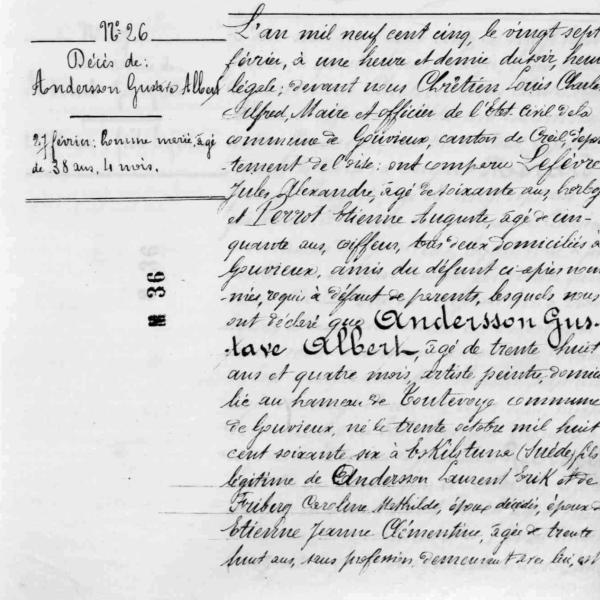 N° 26
Décès de:
Andersson Gustave Albert
27 février: homme marié, agé
de 38 ans, 4 mois.
36
L'an mil neuf cent cinq, le vingt sept
février, à une heure et demie du soir, heure
légale; devant nous Chrétien Louis Charles
Alfred, Maire et officier de l'Etat Civil de la
commune de Gouvieux, canton de Creil, dépar
-tement de l'Oise: ont comparu Lefèvre
Jules Alexandre, agé de soixante ans,
et Perrot Etienne Auguste, agé de cin-
quante ans, coiffeur, tous deux domiciliés à
Gouvieux, amis du défunt ci-après nom
més, requis à défaut de parents, lesquels nous
ont déclaré que Andersson Gus-
tave Albert, agé de trente huit
ans et quatre mois, artiste peintre, domici
lié au hameau de Toutevoye commune
de Gouvieux, né le trente octobre mil huit
cent soixante six à Eskilstuna (Suède) fils
légitime de Andersson Laurent Erik et de
Friberg Caroline Mathilde, époux décédés, époux de
Etienne Jeanne Clémentine, agée de trente
huit ans, sans profession, demeurant avec lui, est